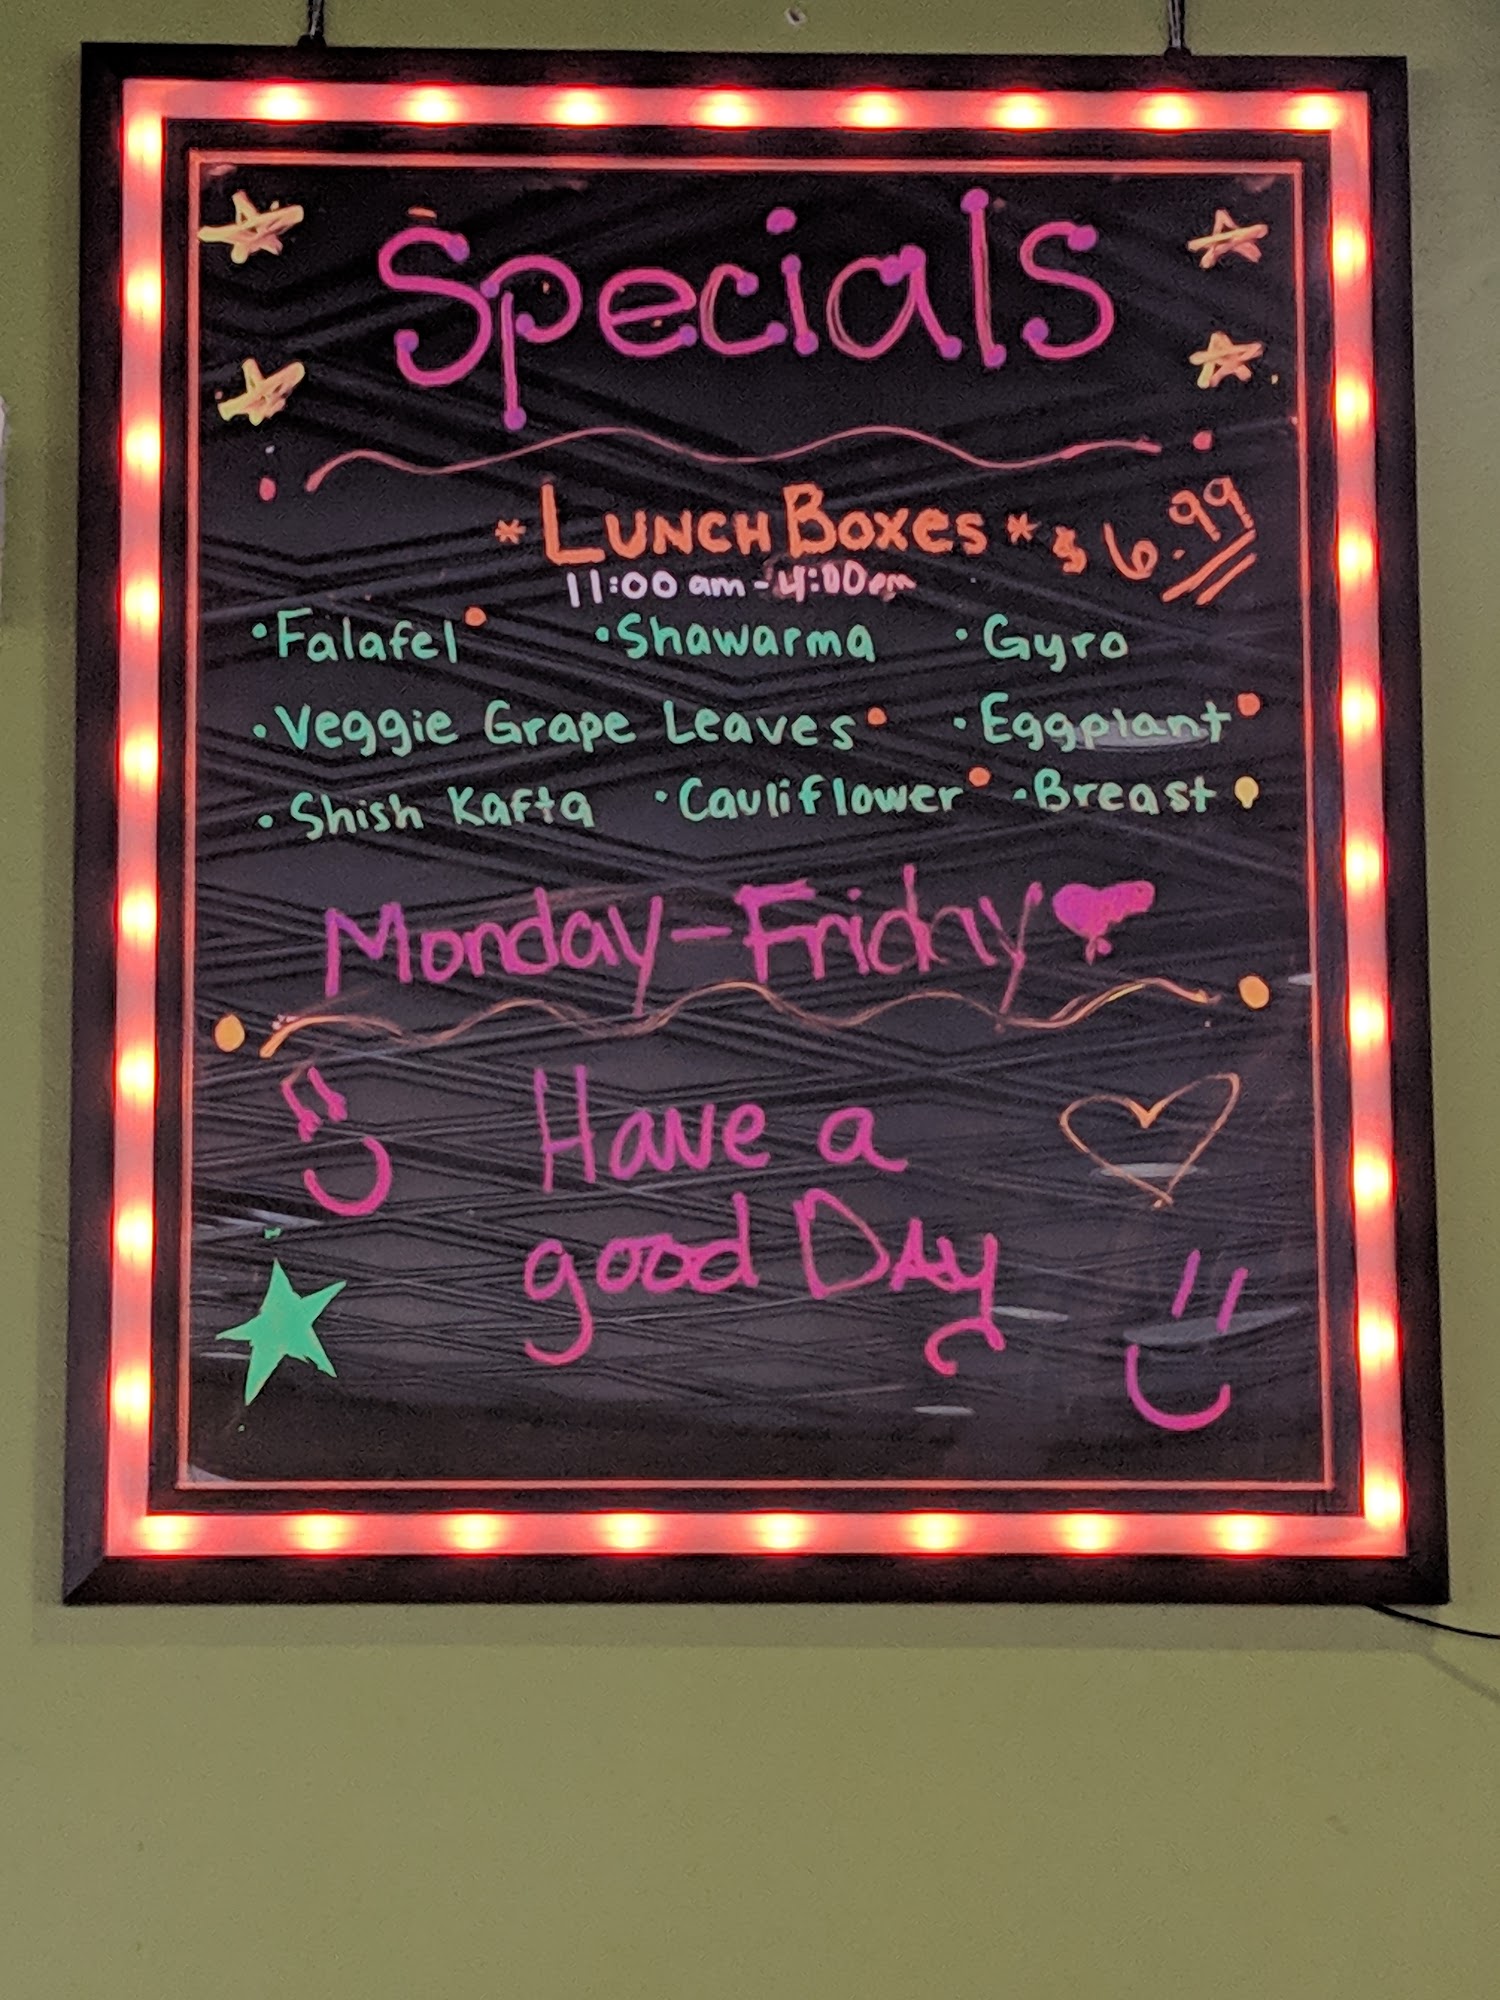 Specials
* LUNCH BOXES * $6.99
11:00 am - 4:00pm
• Falafel • Shawarma • Gyro
• Veggie Grape Leaves • Eggplant
• Shish Kafta • Cauliflower • Breast
Monday - Friday
Have a
good Day